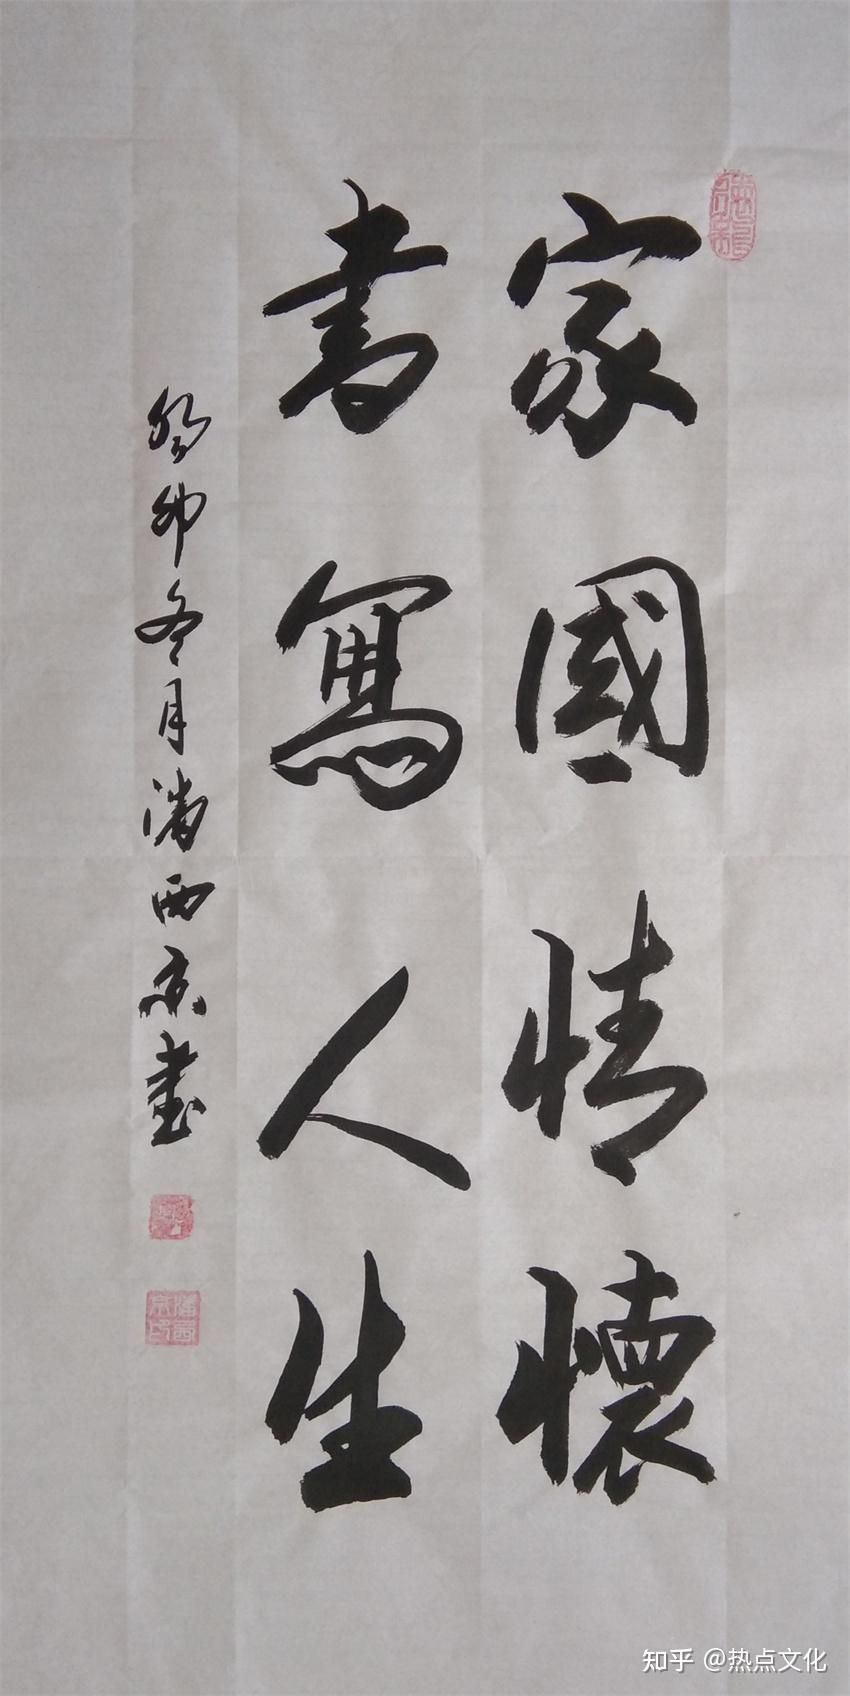 家國情懷
書寫人生
癸卯冬月潘西京書
知乎 @热点文化